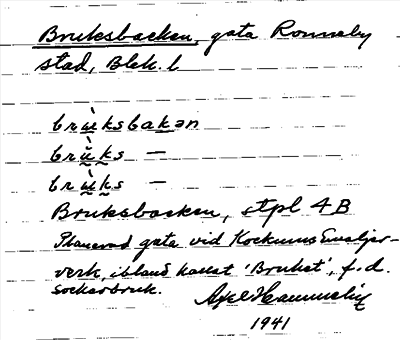 Bruksbacken, gata Ronneby
stad, Blek. l
brù̱ksbakən
brù̱k̰s —
brṵ̀k̰s —
Bruksbacken, stpl 4B
Planerad gata vid Kockums Emaljer-
verk, ibland kallat 'Bruket', f.d.
sockerbruk.
Axel Hammelin
1941